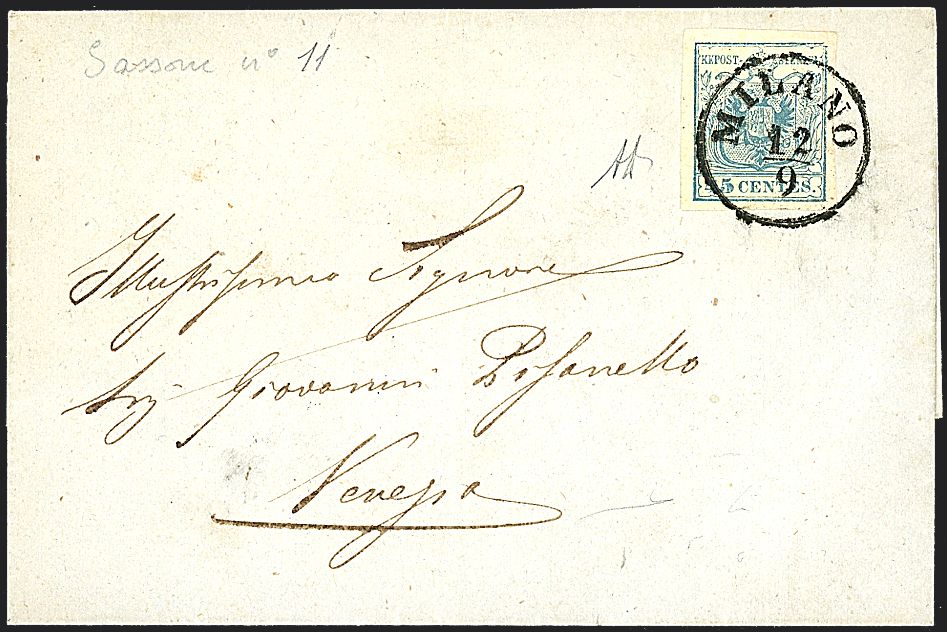 Sassone n° 11
KKPOST-
MILANO
12
9
45 CENTES.
Illustrissimo Signore
Sig Giovanni Pisanello
Venezia